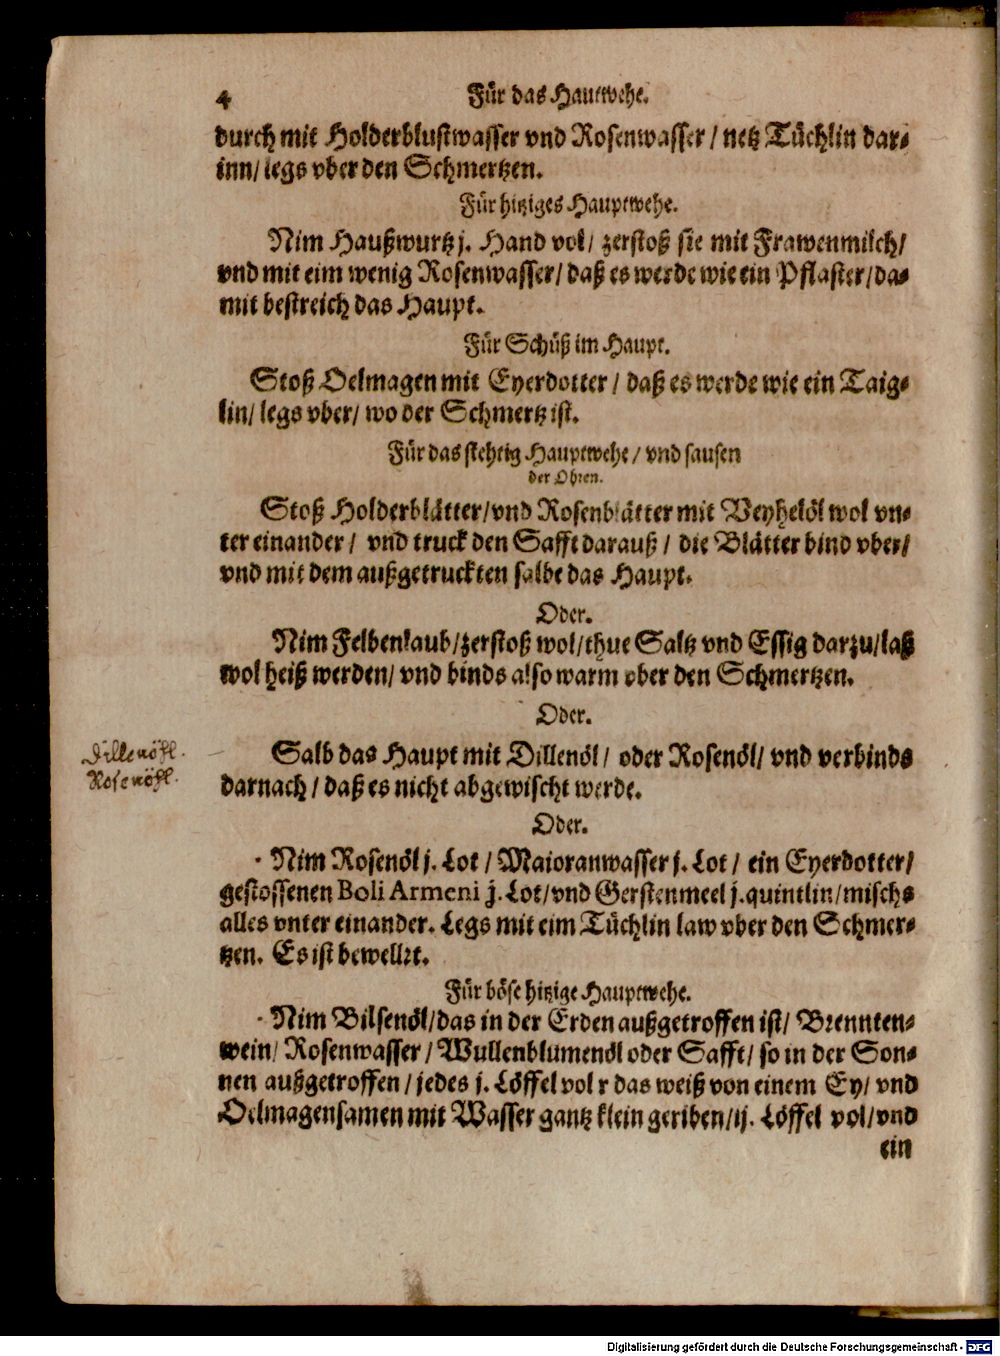 4 Für das Hautwehe.
durch mit Holderblustwasser vnd Rosenwasser / netz Tüchlin dar⸗
inn/ legs vber den Schmertzen.
Für hitziges Hauptwehe.
Nim Haußwurtz j. Hand vol/ zerstoß sie mit Frawenmilch/
vnd mit eim wenig Rosenwasser/ daß es werde wie ein Pflaster/da⸗
mit bestreich das Haupt.
Für Schüß im Haupt.
Stoß Oelmagen mit Eyerdotter / daß es werde wie ein Taig⸗
lin/ legs vber/ wo der Schmertz ist.
Für das stehtig Hauptwehe / vnd sausen
der Ohren.
Stoß Holderblätter/vnd Rosenblätter mit Veyhelöl wol vn⸗
ter einander / vnd truck den Safft darauß / die Blätter bind vber/
vnd mit dem außgetruckten salbe das Haupt.
Oder.
Nim Felbenlaub/zerstoß wol/thue Saltz vnd Essig darzu/laß
wol heiß werden/ vnd binds also warm vber den Schmertzen.
Oder.
Dillenöhl.
Rosenöhl.
Salb das Haupt mit Dillenöl / oder Rosenöl/ vnd verbinds
darnach / daß es nicht abgewischt werde.
Oder.
Nim Rosenöl j. Lot / Maioranwasser j. Lot / ein Eyerdotter/
gestossenen Boli Armeni j. Lot/vnd Gerstenmeel j.quintlin/mischs
alles vnter einander. Legs mit eim Tüchlin law vber den Schmer⸗
tzen. Es ist bewehrt.
Für böse hitzige Hauptwehe.
Nim Bilsenöl/das in der Erden außgetroffen ist/ Brennten⸗
wein/ Rosenwasser / Wullenblumenöl oder Safft/ so in der Son⸗
nen außgetroffen / jedes j. Löffel vol r das weiß von einem Ey/ vnd
Oelmagensamen mit Wasser gantz klein geriben/ij. Löffel vol/vnd
ein
Digitalisierung gefördert durch die Deutsche Forschungsgemeinschaft - DFG